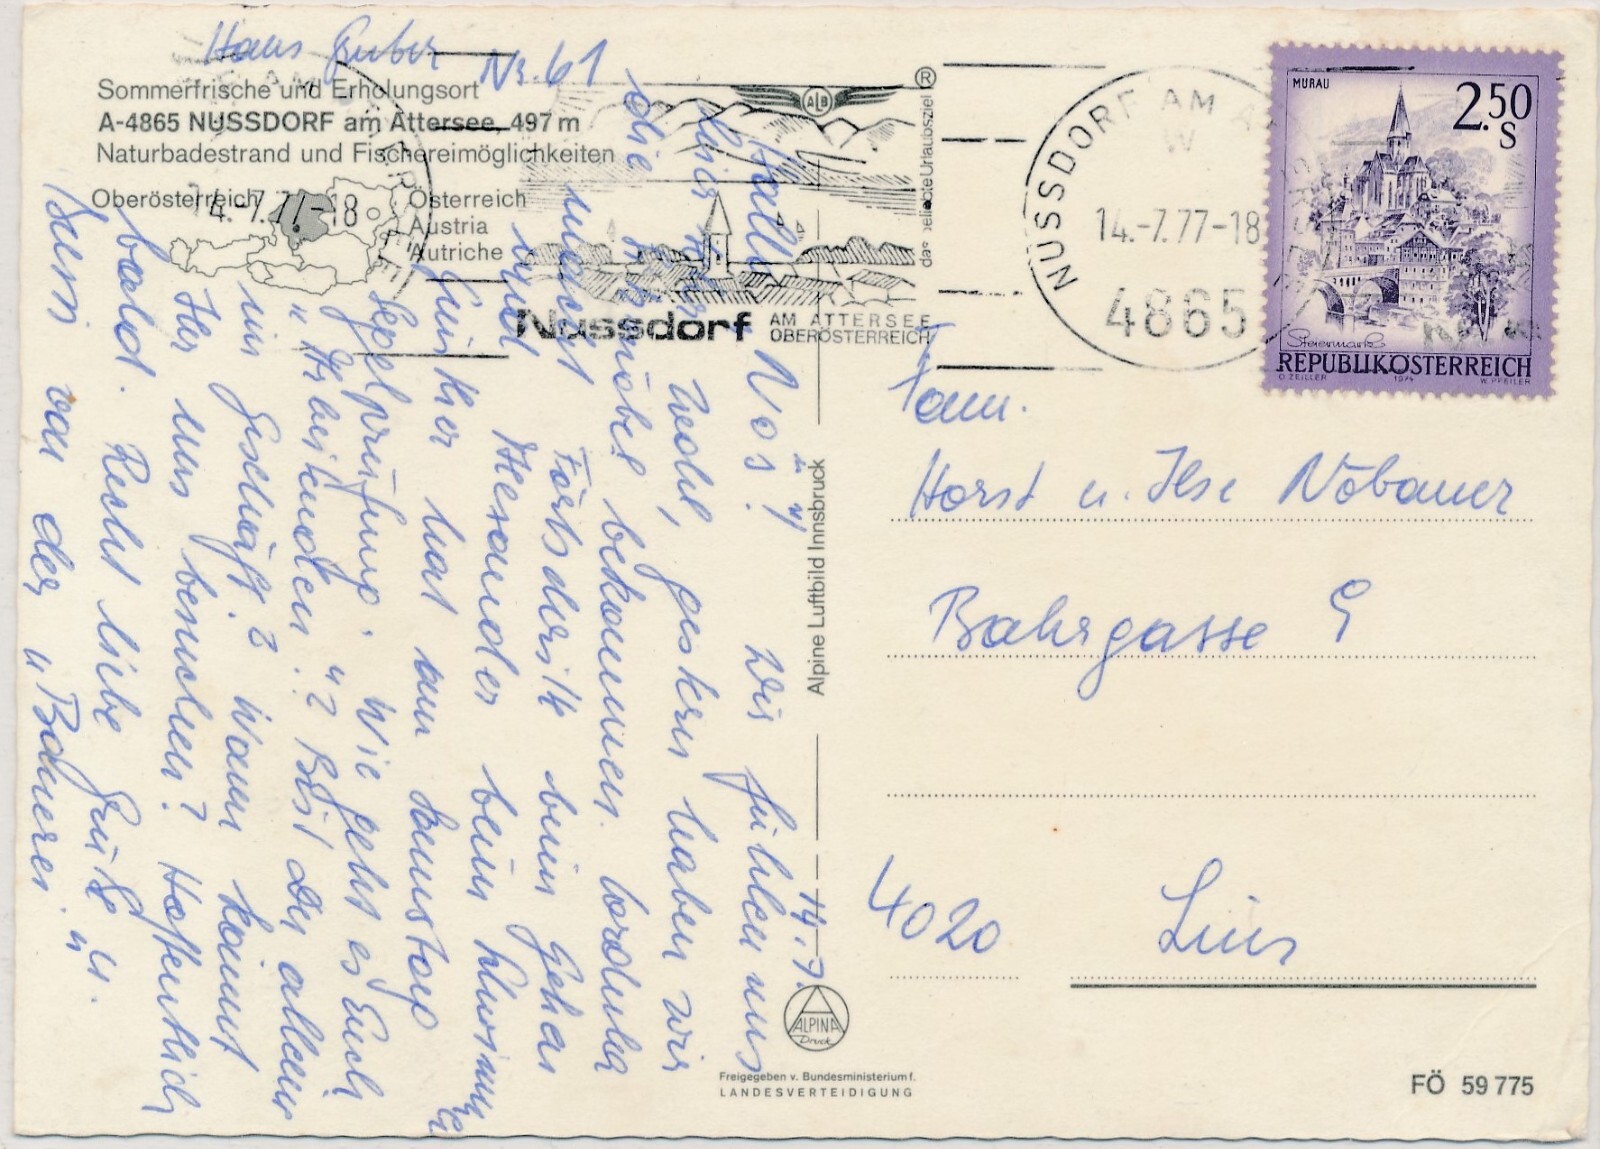 Hans Gruber Nr. 61
Sommerfrische und Erholungsort
A-4865 NUSSDORF am Attersee, 497 m
Naturbadestrand und Fischereimöglichkeiten
Oberösterreich
Österreich
Austria
Autriche
14.-7.77-18
ALB
®
das beliebte Urlaubsziel
Nussdorf AM ATTERSEE
OBERÖSTERREICH
NUSSDORF AM
14.-7.77-18
4865
MURAU
2.50
S
Steiermark
REPUBLIK ÖSTERREICH
O. ZEILLER 1974 W. PFEILER
14. 7.
Hallo Nos! Wir fühlen uns
hier sehr wohl, gestern haben wir
die möbel bekommen.
macht Fortschritte beim Gehen
und Alexander beim Schwimmen
Günther hat am Samstag
Segelprüfung. Wie geht es Euch
"Arbeitenden"? Bist du allein
im Geschäft? Wann kommt
Ihr uns besuchen? Hoffentlich
bald. Recht liebe Grüße u.
Bussi von der "Bauerei"
Fam.
Horst u. Ilse Nöbauer
Bahrgasse 9
4020 Linz
Alpine Luftbild Innsbruck
ALPINA
Druck
Freigegeben v. Bundesministerium f.
LANDESVERTEIDIGUNG
FÖ 59 775